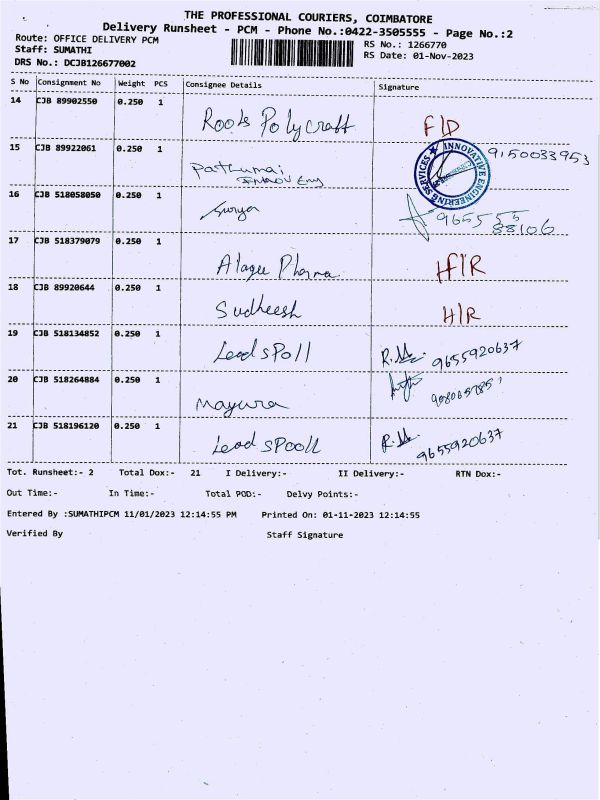 THE PROFESSIONAL COURIERS, COIMBATORE
Delivery Runsheet - PCM - Phone No.:0422-3505555 - Page No.:2
Route: OFFICE DELIVERY PCM
RS No.: 1266770
Staff: SUMATHI
RS Date: 01-Nov-2023
DRS No.: DCJB126677002
S No Consignment No Weight PCS Consignee Details Signature
14 CJB 89902550 0.250 1 Roots Polycraft F/D
15 CJB 89922061 0.250 1 INNOVATIVE ENGINEERING SERVICES 9150033953
16 CJB 518058050 0.250 1 Surya 965555
88106
17 CJB 518379079 0.250 1 Alagee Pharma H/R
18 CJB 89920644 0.250 1 Sudheesh H/R
19 CJB 518134852 0.250 1 Lead SPoll 9655920637
20 CJB 518264884 0.250 1 Mayura
21 CJB 518196120 0.250 1 Lead SPooll 9655920637
Tot. Runsheet:- 2 Total Dox:- 21 I Delivery:- II Delivery:- RTN Dox:-
Out Time:- In Time:- Total POD:- Delvy Points:-
Entered By :SUMATHIPCM 11/01/2023 12:14:55 PM Printed On: 01-11-2023 12:14:55
Verified By Staff Signature